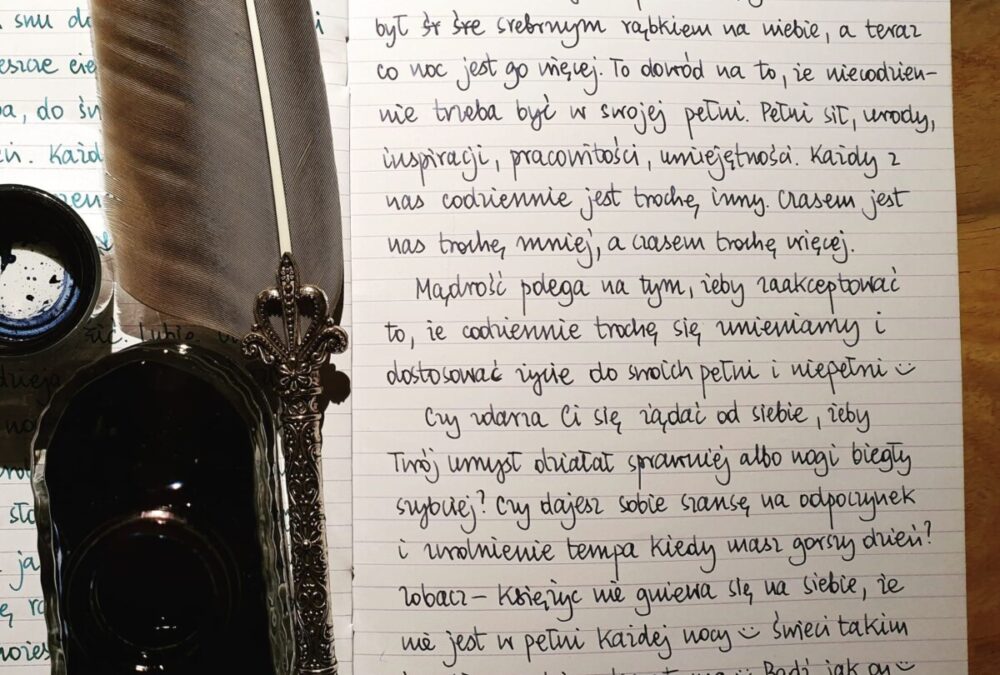 snu do
eszcze
ba, do śn
eń. Każd
zic. Lubię
dzieją
no
sto
ja
był śr śre srebrnym rąbkiem na niebie, a teraz
co noc jest go więcej. To dowód na to, że niecodzien-
nie trzeba być w swojej pełni. Pełni sił, urody,
inspiracji, pracowitości, umiejętności. Każdy z
nas codziennie jest trochę inny. Czasem jest
nas trochę mniej, a czasem trochę więcej.
Mądrość polega na tym, żeby zaakceptować
to, że codziennie trochę się zmieniamy i
dostosować życie do swoich pełni i niepełni :)
Czy zdarza Ci się żądać od siebie, żeby
Twój umysł działał sprawniej albo nogi biegły
szybciej? Czy dajesz sobie szansę na odpoczynek
i zwolnienie tempa kiedy masz gorszy dzień?
Zobacz – Księżyc nie gniewa się na siebie, że
nie jest w pełni każdej nocy :) Świeci takim
Bądź jak on :)